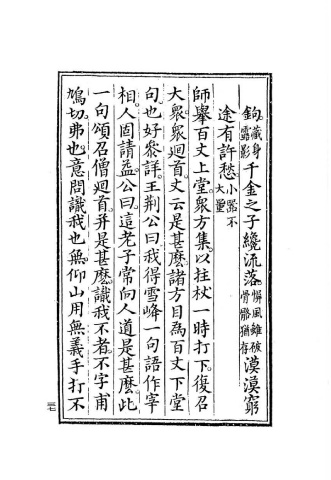 鉤。藏身露影千金之子纔流落。風雖破骨骼猶存漠漠窮
途有許愁小器不大量
師舉百丈上堂。眾方集。以拄杖一時打下。復召
大眾。眾迴首。丈云是甚麼。諸方目為百丈下堂
句也好參詳。王荊公曰我得雪峰一句語作宰
相。人固請益。公曰。這老子常向人道是甚麼。此
一句頌召僧迴首并是甚麼。識我不者。不字甫
鳩切。弗也。意問識我也無。仰山用無義手打不
三七